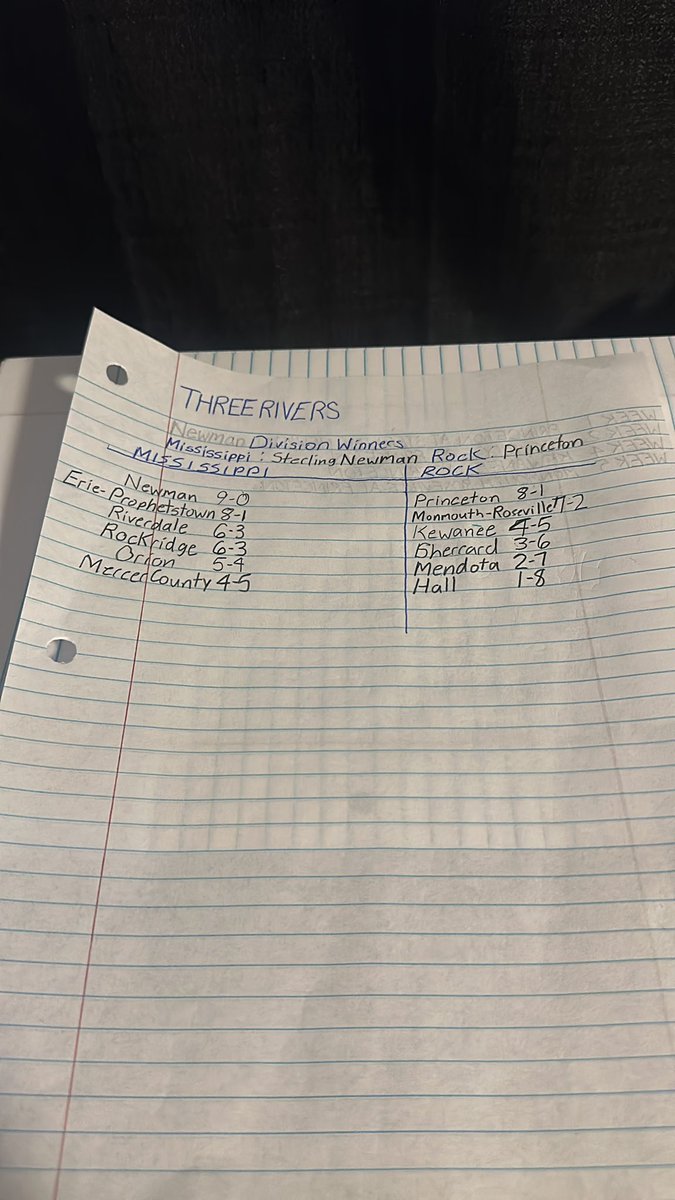 THREE RIVERS
Newman Division Winners
Mississippi : Sterling Newman Rock : Princeton
MISSISSIPPI
Newman 9-0
Erie-Prophetstown 8-1
Riverdale 6-3
Rockridge 6-3
Orion 5-4
Mercer County 4-5
ROCK
Princeton 8-1
Monmouth-Roseville 7-2
Kewanee 4-5
Sherrard 3-6
Mendota 2-7
Hall 1-8